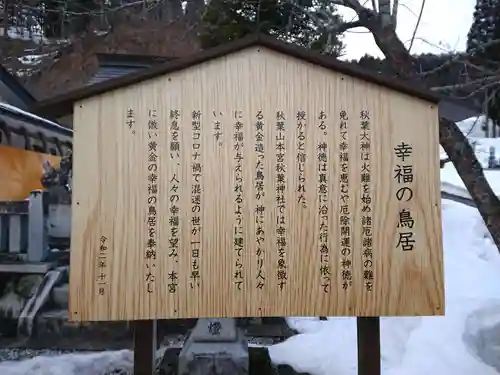 幸福の鳥居
秋葉大神は火難を始め諸厄諸病の難を
免れて幸福を恵むや厄除開運の神徳が
ある。神徳は真意に沿った行いに依って
授かると信じられた。
秋葉山本宮秋葉神社では幸福を象徴す
る黄金造った鳥居が神にあやかり人々
に幸福が与えられるように建てられて
います。
新型コロナ禍で混迷の世が一日も早い
終息を願い、人々の幸福を望み、本宮
に倣い黄金の幸福の鳥居を奉納いたし
ます。
令和二年十一月
燈